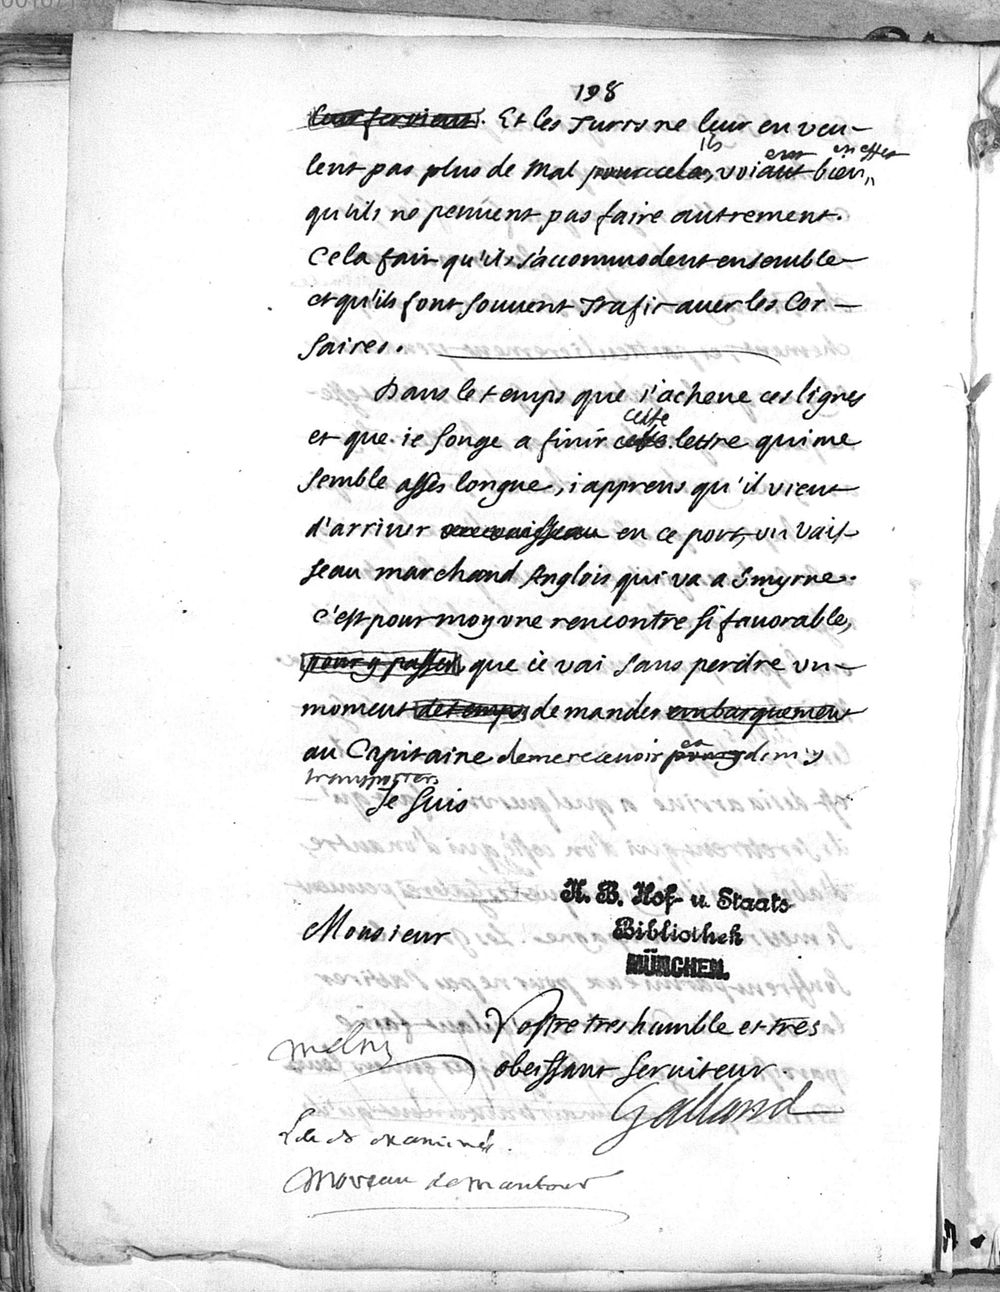 198
leur servient. Et les Turcs ne leur en veu-
lent pas plus de mal pour cela, ils voiant bien en effet
qu'ils ne peuuent pas faire autrement.
Cela fait qu'ils s'accommodent ensemble
et qu'ils font souuent trafic auec les Cor-
saires.
Dans le temps que i'acheue ces lignes
et que ie songe a finir cette lettre qui me
semble assés longue, i'apprens qu'il vient
d'arriuer un vaisseau en ce port, un Vais-
seau marchand Anglois qui va a Smyrne.
C'est pour moy vne rencontre si fauorable,
pour y passer, que ie vai sans perdre un
moment de temps demander embarquement
au Capitaine de me receuoir et de m'y
transporter.
Je suis
K. B. Hof- u. Staats
Bibliothek
MÜNCHEN.
Monsieur
Vostre tres humble et tres
obeissant seruiteur.
Galland
Lu & examiné.
Moreau de Mautour